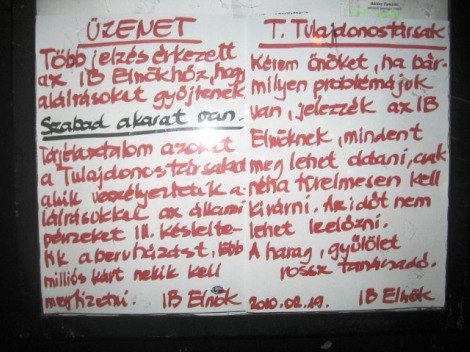 ÜZENET
Több jelzés érkezett
az IB Elnökhöz, hogy
aláírásokat gyűjtenek
Szabad akarat van.
Tájékoztatom azokat
a Tulajdonostársakat
akik veszélyeztetik a-
láírásukkal az állami
pénzeket ill. késlelte-
tik a beruházást, több
milliós kárt nekik kell
megfizetni. IB Elnök
T. Tulajdonostársak
Kérem önöket, ha bár-
milyen problémájuk
van, jelezzék az IB
Elnöknek, mindent
meg lehet oldani, csak
néha türelmesen kell
kivárni. Az időt nem
lehet leelőzni.
A harag, gyűlölet
rossz tanácsadó.
2010.02.19. IB Elnök